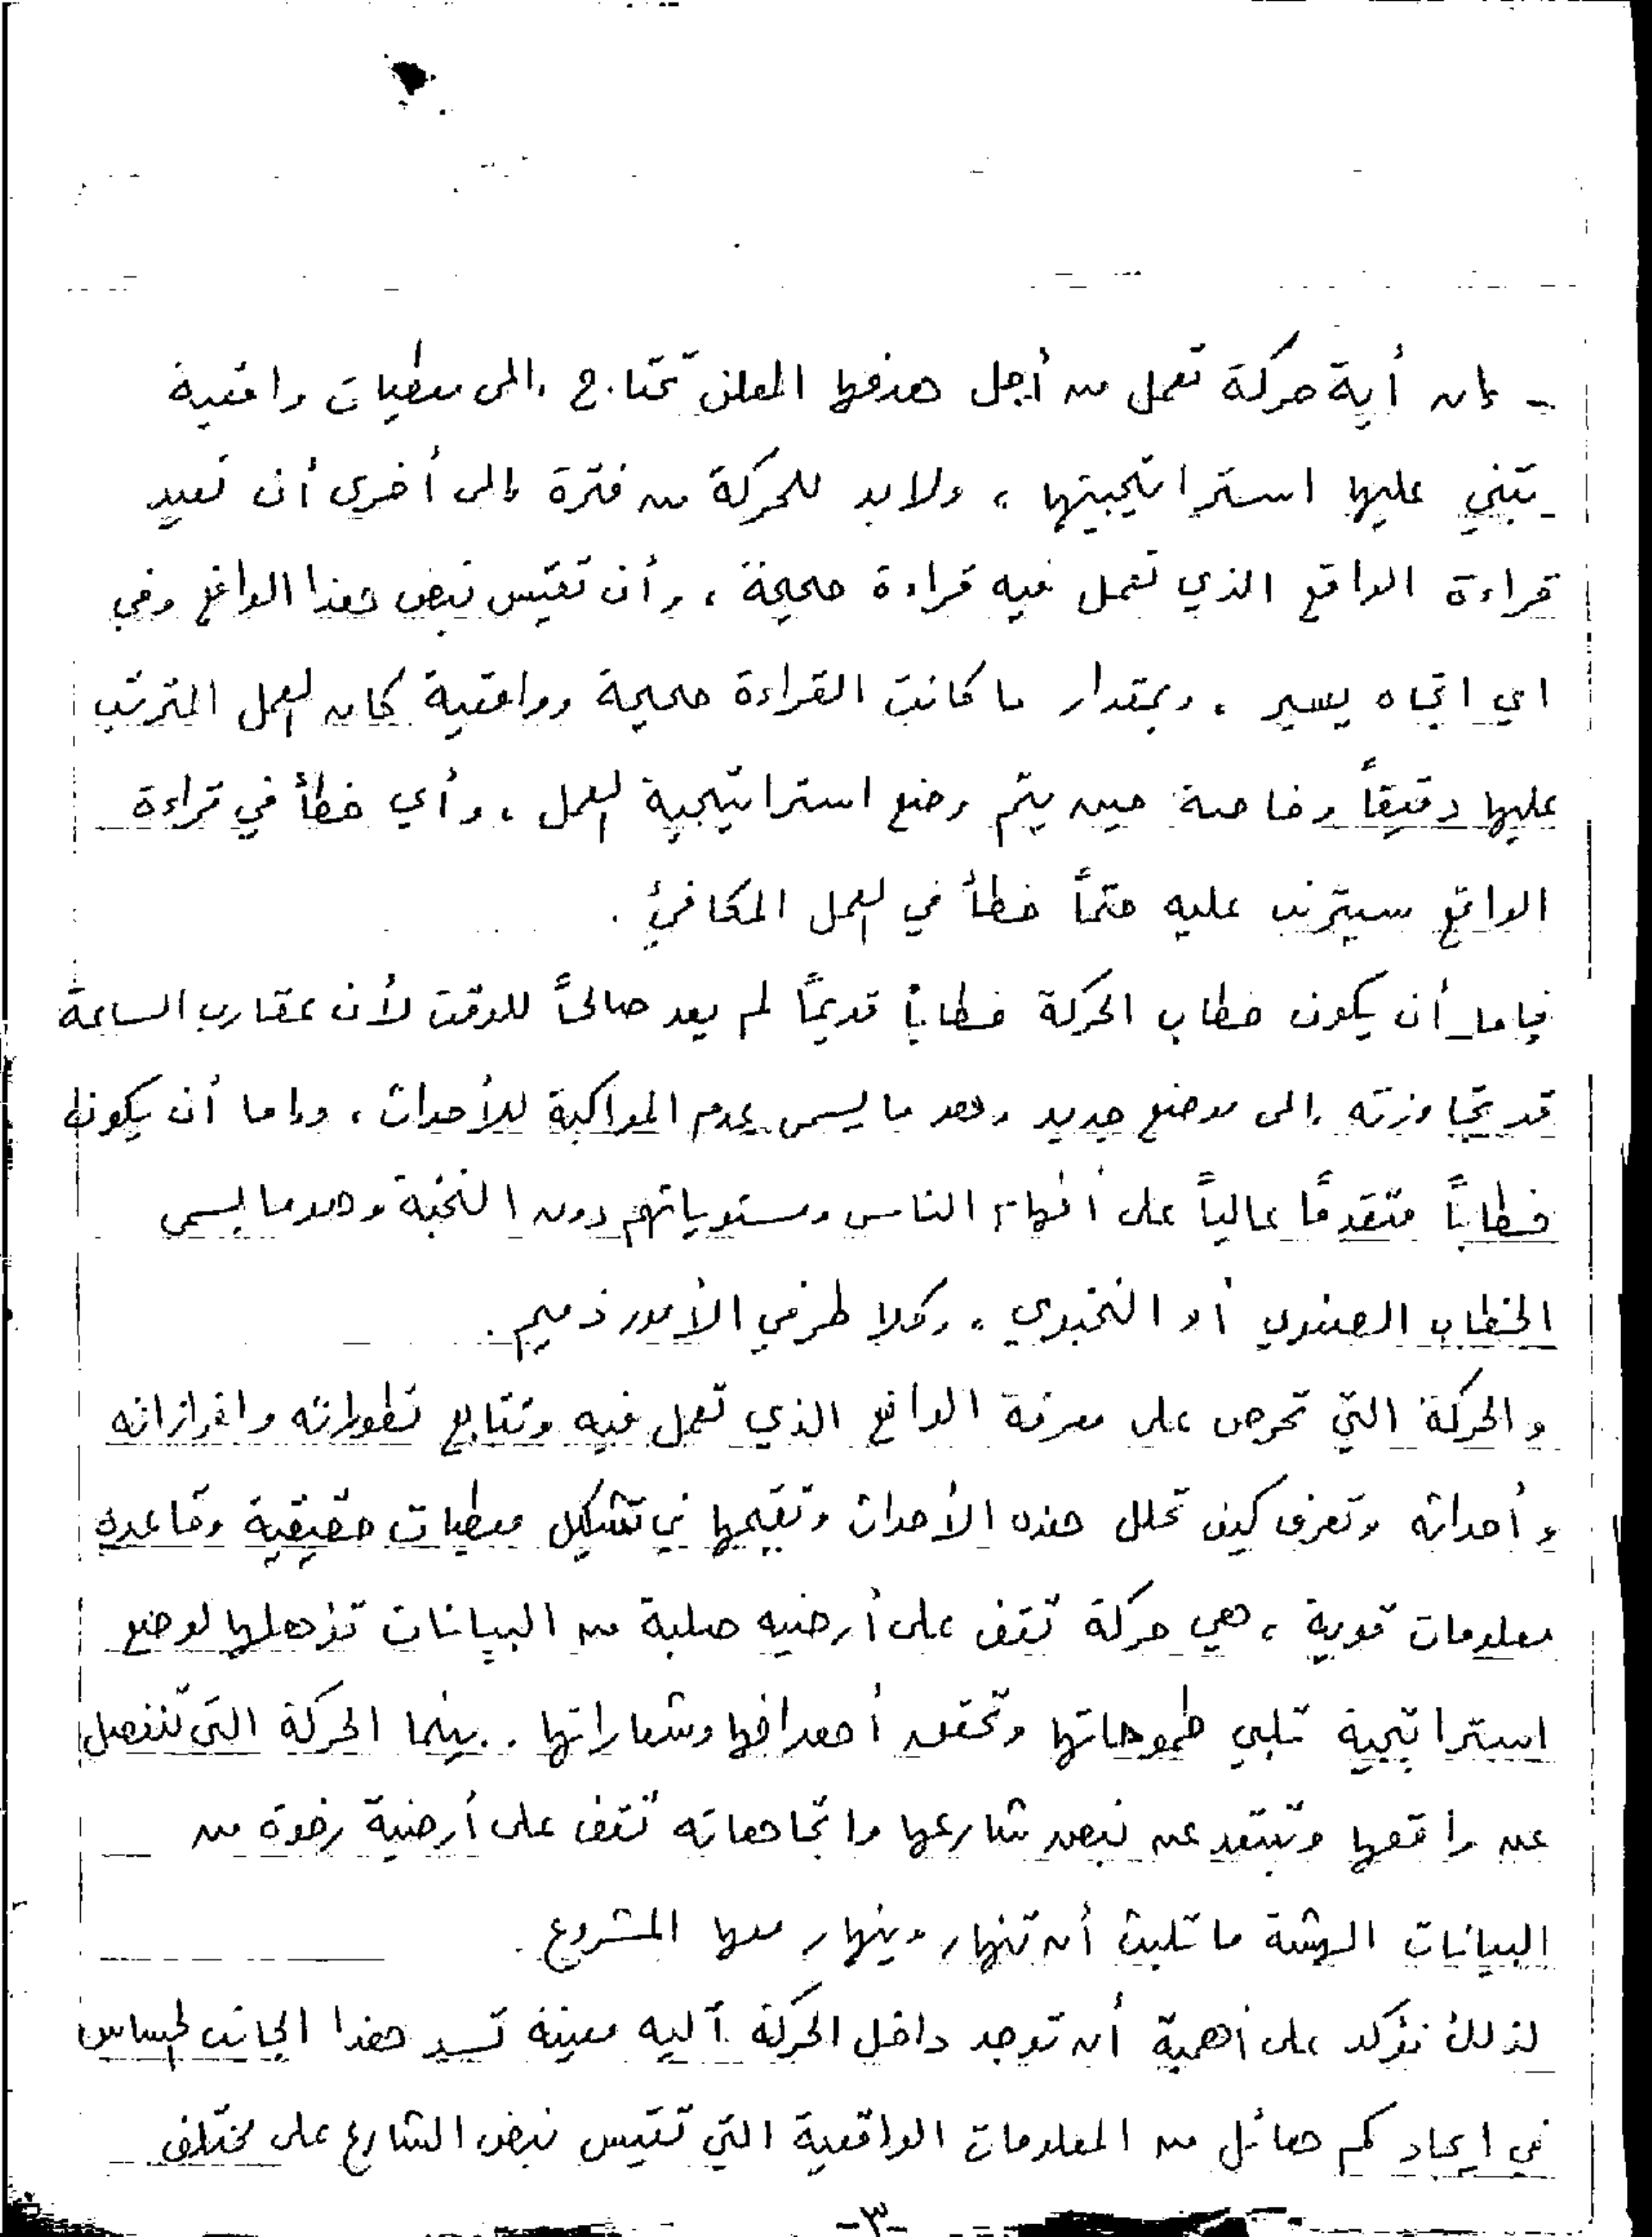 - إن أية حركة تعمل من أجل هدفها المعلن تحتاج إلى معطيات واقعية
تبني عليها استراتيجيتها ، ولابد للحركة من فترة إلى أخرى أن تعيد
قراءة الواقع الذي تعمل فيه قراءة صحيحة ، وأن تقيس نبض هذا الواقع وفي
اي اتجاه يسير ، وبمقدار ما كانت القراءة صحيحة وواقعية كان العمل المترتب
عليها دقيقاً وخاصة حين يتم وضع استراتيجية العمل ، وأي خطأ في قراءة
الواقع سيترتب عليه حتماً خطأ في العمل المكافئ .
فإما أن يكون خطاب الحركة خطاباً قديماً لم يعد صالحاً للوقت لأن عقارب الساعة
قد تجاوزته إلى موضع جديد وهو ما يسمى بعدم المواكبة للأحداث ، وإما أن يكون
خطاباً متقدماً عالياً على أفهام الناس ومستوياتهم دون النخبة وهو ما يسمى
الخطاب الصفوي أو النخبوي ، وكلا طرفي الأمور ذميم .
والحركة التي تحرص على معرفة الواقع الذي تعمل فيه وتتابع تطوراته وافرازاته
وأحداثه وتعرف كيف تحلل هذه الأحداث وتقيمها في تشكيل معطيات حقيقية وقاعدة
معلومات قوية ، هي حركة تقف على أرضيه صلبة من البيانات تؤهلها لوضع
استراتيجية تلبي طموحاتها وتحقق أهدافها وشعاراتها .. بينما الحركة التي تنفصل
عن واقعها وتبتعد عن نبض شارعها واتجاهاته تقف على أرضية رخوة من
البيانات الهشة ما تلبث أن تنهار وينهار معها المشروع .
لذلك نؤكد على أهمية أن توجد داخل الحركة آليه معينة تسد هذا الجانب الحساس
في ايجاد كم هائل من المعلومات الواقعية التي تقيس نبض الشارع على مختلف
-٣-